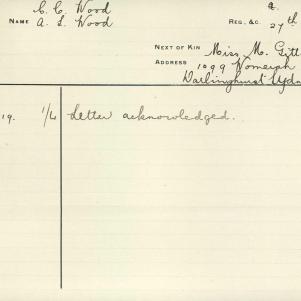 C. C. Wood
NAME A. L. Wood
REG., &C. 27th
NEXT OF KIN Miss M. Gitt
ADDRESS 109a Womerah
Darlinghurst Sydn
19. 1/4 Letter acknowledged.